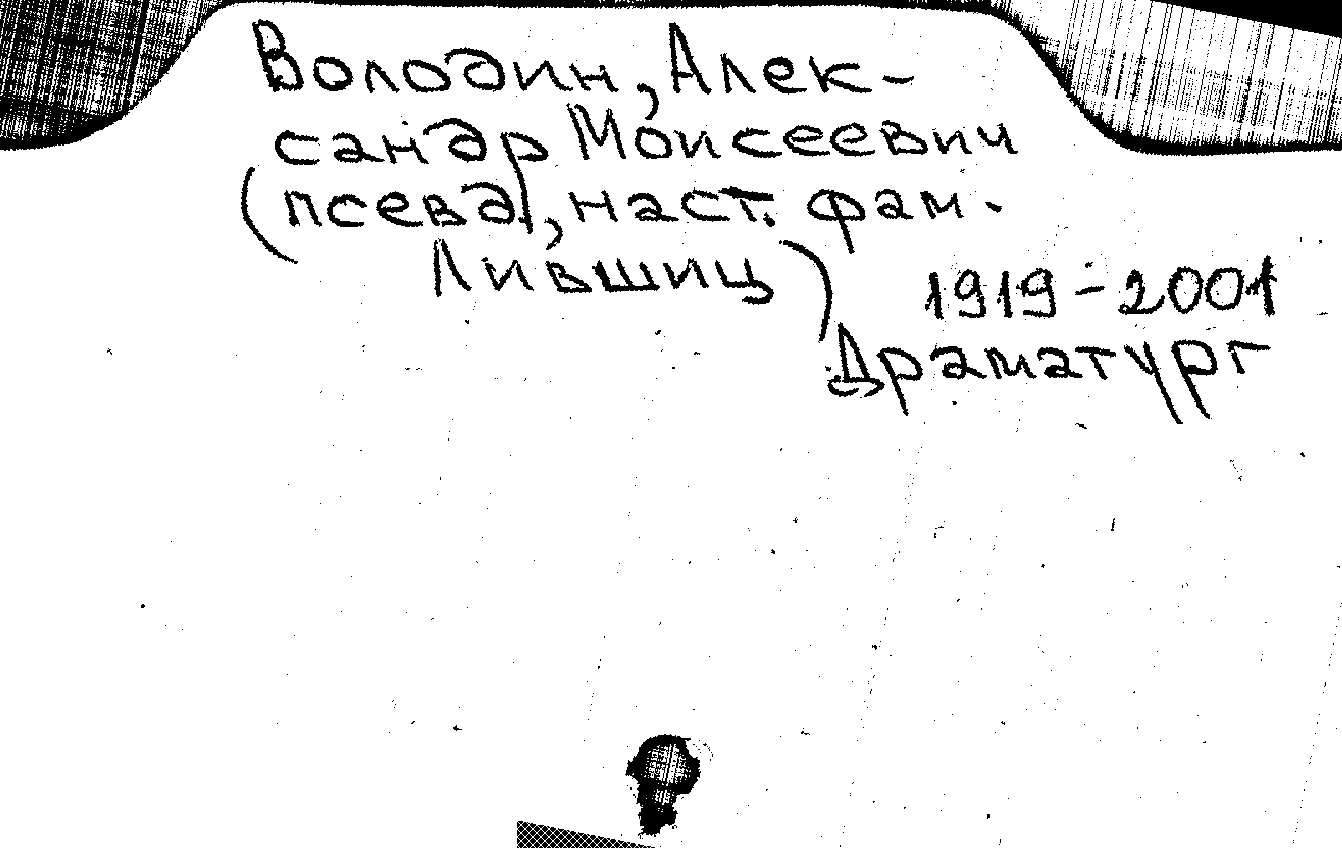 Володин, Алек-
сандр Моисеевич
(псевд., наст. фам.
Лившиц)
1919-2001
Драматург